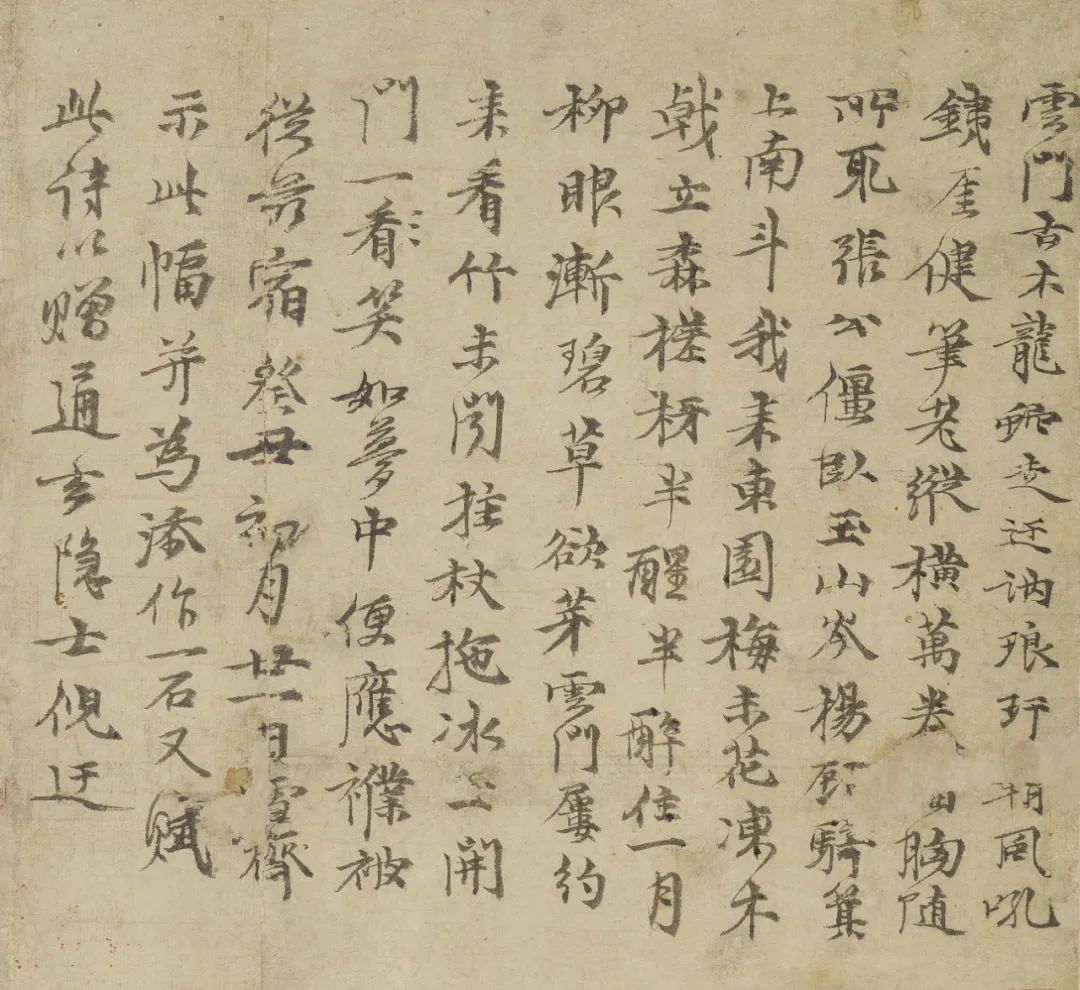 雲門古木龍蛇走迂訥琅玕朝風吼
鐵崖健筆老縱橫萬卷胸隨
所取張公僵臥玉山岑楊顧騎箕
上南斗我來東園梅未花凍木
戟立森槎枒半醒半醉住一月
柳眼漸碧草欲芽雲門屢約
來看竹未問拄杖拖冰上開
門一看看笑如夢中便應襆被
從君宿癸丑初月廿一日雪齋
示此幅并為添作一石又賦
此詩以贈通玄隱士倪迂